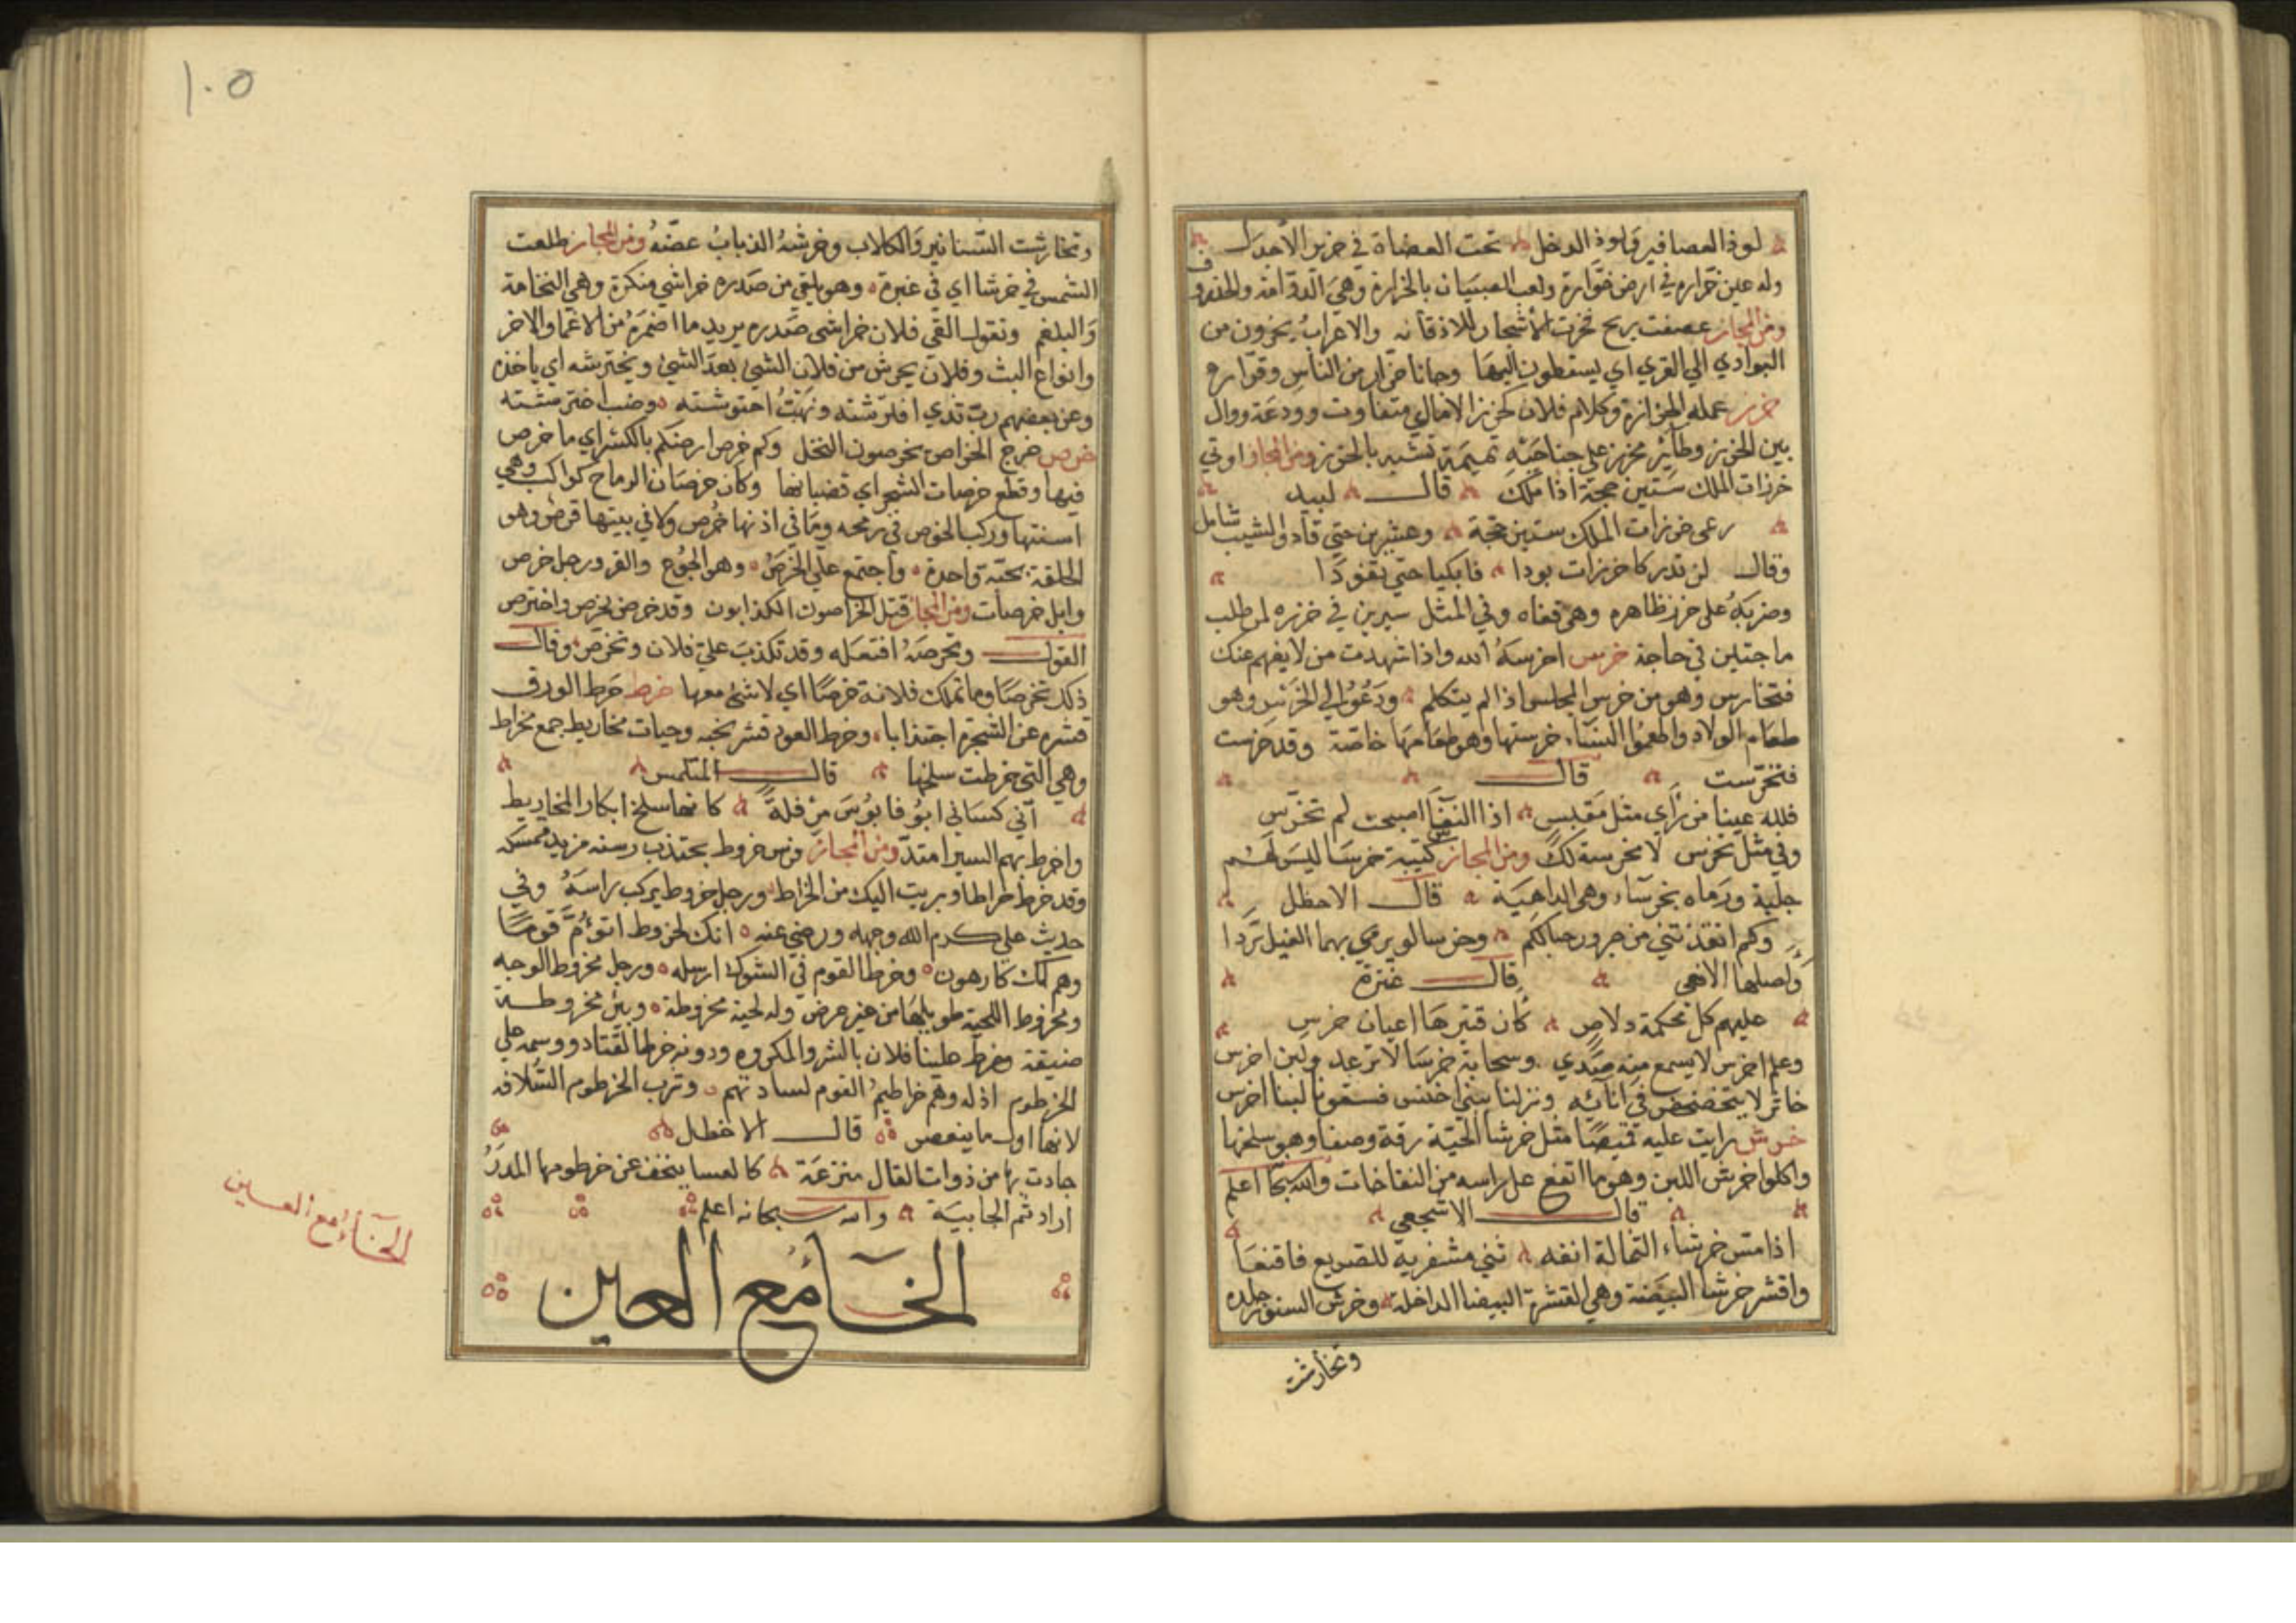 لوذ العصافير ولوذ الدخل تحت العضاة في خرير الأجدل
وله عين خراره في ارض خوارة ولعب الصبيان بالخرارة وهي الدوامة والخذروف
ومن المجاز عصفت ريح فخرت الأشجار للاذقان والاعراب يخرون من
البوادي الي القري اي يسقطون اليها وجانا خرار من الناس وقوارع
خرز عمله الخرازة وكلام فلان كخرز الاماي متفاوت وودعة ووال
بين الخرز وطائر مخرز علي جناحيه نميمة تشبه بالخرز ومن المجاز اوتي
خرزات الملك ستين حجة اذا ملك قال لبيد
رعى خرزات الملك ستين حجة وعشرين حتي فاد والشيب شامل
وقال لن تدركا خرزات بودا فابكيا حتي تفودا
وضربه على خرز ظاهره وهي قفاه وفي المثل سيرين في خرزه لمن طلب
حاجتين في حاجة خرس اخرسه الله واذا شهدت من لا يفهم عنك
فتخارس وهو من خرس المجلس اذا لم يتكلم ودعوا الي الخرس وهو
طعام الولاد واطعموا النساء خرستها وهو طعامها خاصة وقد خرست
فتخرست قال
فلله عينا من راي مثل مقيس اذا النفسا اصبحت لم تخرس
وفي مثل تخرس لا مخرسة لك ومن المجاز كتيبة خرسا ليس لهم
جلبة ورماه بخرساء وهي الداهية قال الاخطل
وكم انقذتني من جرور حبالكم وخرسا لو يرمي بهما الفيل تردا
واصلها الافعي قال عنترة
عليهم كل محكمة دلاص كان قتيرها اعيان خرس
وعلم اخرس لا يسمع منه صدي وسحابة خرسا لا ترعد ولبن اخرس
خاثر لا يتخضخض في انائه ونزلنا ببني اخنس فسقونا لبنا اخرس
خرش رايت عليه قميصا مثل خرشا الحية رقة وصفا وهو سلخها
واكلوا خرش اللبن وهو ما انفع على راسه من النفاخات والله سبحا اعلم
قال الاشجعي
اذا مس خرشاء الثمالة انفه ثني مشفريه للصريع فاقنعا
واقشر خرشا البيضة وهي القشرة البيضا الداخله وخرش السنور جلده
وتخارشت
١٠٥
وتخارشت السنانير والكلاب وخرشه الذباب عضه ومن المجاز طلعت
الشمس في خرشا اي في غبرة وهو يلقي من صدره خراشي منكرة وهي النخامة
والبلغم وتقول القي فلان خراشي صدره يريد ما اضمره من الاغما والاخر
وانواع البث وفلان يخرش من فلان الشي بعد الشي ويخترشه اي ياخذه
وعن بعضهم رب ثدي افترشته ونهب احتوشته وضب اخترشته
خرص خرج الخراص يخرصون النخل وكم خرص ارضكم بالكسر اي ما خرص
فيها وقطع خرصات الشجر اي قضبانها وكان خرصان الرماح كواكب وهي
اسنتها وركب الخرص في رمحه وما في اذنها خرص ولا في بيتها قرص وهو
الحلقة بحبة واحدة واجتمع علي الخرص وهو الجوع والقر ورجل خرص
وابل خرصات ومن المجاز قتل الخراصون الكذابون وقد خرص يخرص واخترص
القول وتخرصه افتعله وقد تكذب علي فلان وتخرص وقال
ذلك تخرصا وما تملك فلانة خرصا اي لا شي معها خرط خرط الورق
قشره عن الشجرة اجتذابا وخرط العود قشر نجبه وحيات مخاريط جمع مخراط
وهي التي خرطت سلخها قال المتلمس
اني كساني ابو قابوس مرفلة كانها سلخ ابكار المخاريط
واخرط بهم السير امتد ومن المجاز فرس خروط يجتذب رسنه من يد ممسكه
وقد خرط خراطا وبريت اليك من الخراط ورجل خروط يركب راسه وفي
حديث علي كرم الله وجهه ورضي عنه انك لخروط اتؤم قوما
وهم لك كارهون وخرط القوم في الشوك ارسله ورجل مخروط الوجه
ومخروط اللحية طويلها من غير عرض وله لحية مخروطة وبئر مخروطة
ضيقة وخرط علينا فلان بالشر والمكروه ودونه خرط القتاد ووسمه علي
الخرطوم اذله وهم خراطيم القوم لساداتهم وشرب الخرطوم السلافه
لانها اول ما ينعصر قال الاخطل
جادت بها من ذوات القال منزعة كالعسا ينخف عن خرطومها المدر
اراد ثم الخابية والله سبحانه اعلم
الخآء مع العين
الخآء مع العين